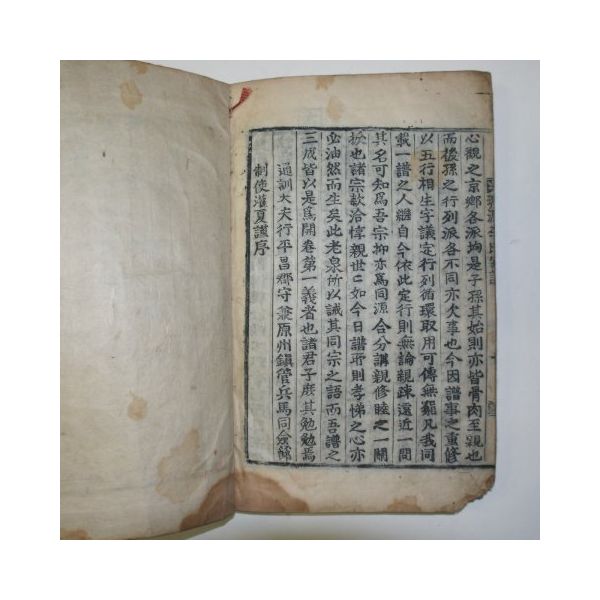 心觀之京鄉各派均是子孫其始則亦皆骨肉至親也
而後孫之行列派各不同亦欠事也今因譜事之重修
以五行相生字議定行列循環取用可傳無窮凡我同
載一譜之人繼自今依此定行則無論親疎遠近一問
其名可知爲吾宗抑亦爲同源合分講親修睦之一關
捩也諸宗欽洽惇親世二如今日譜所則孝悌之心亦
必油然而生矣此老泉所以誠其同宗之語而吾譜之
三成皆以是爲開卷第一義者也諸君子庶其勉勉焉
通訓大夫行平昌郡守兼原州鎭管兵馬同僉節
制使灌夏謹序